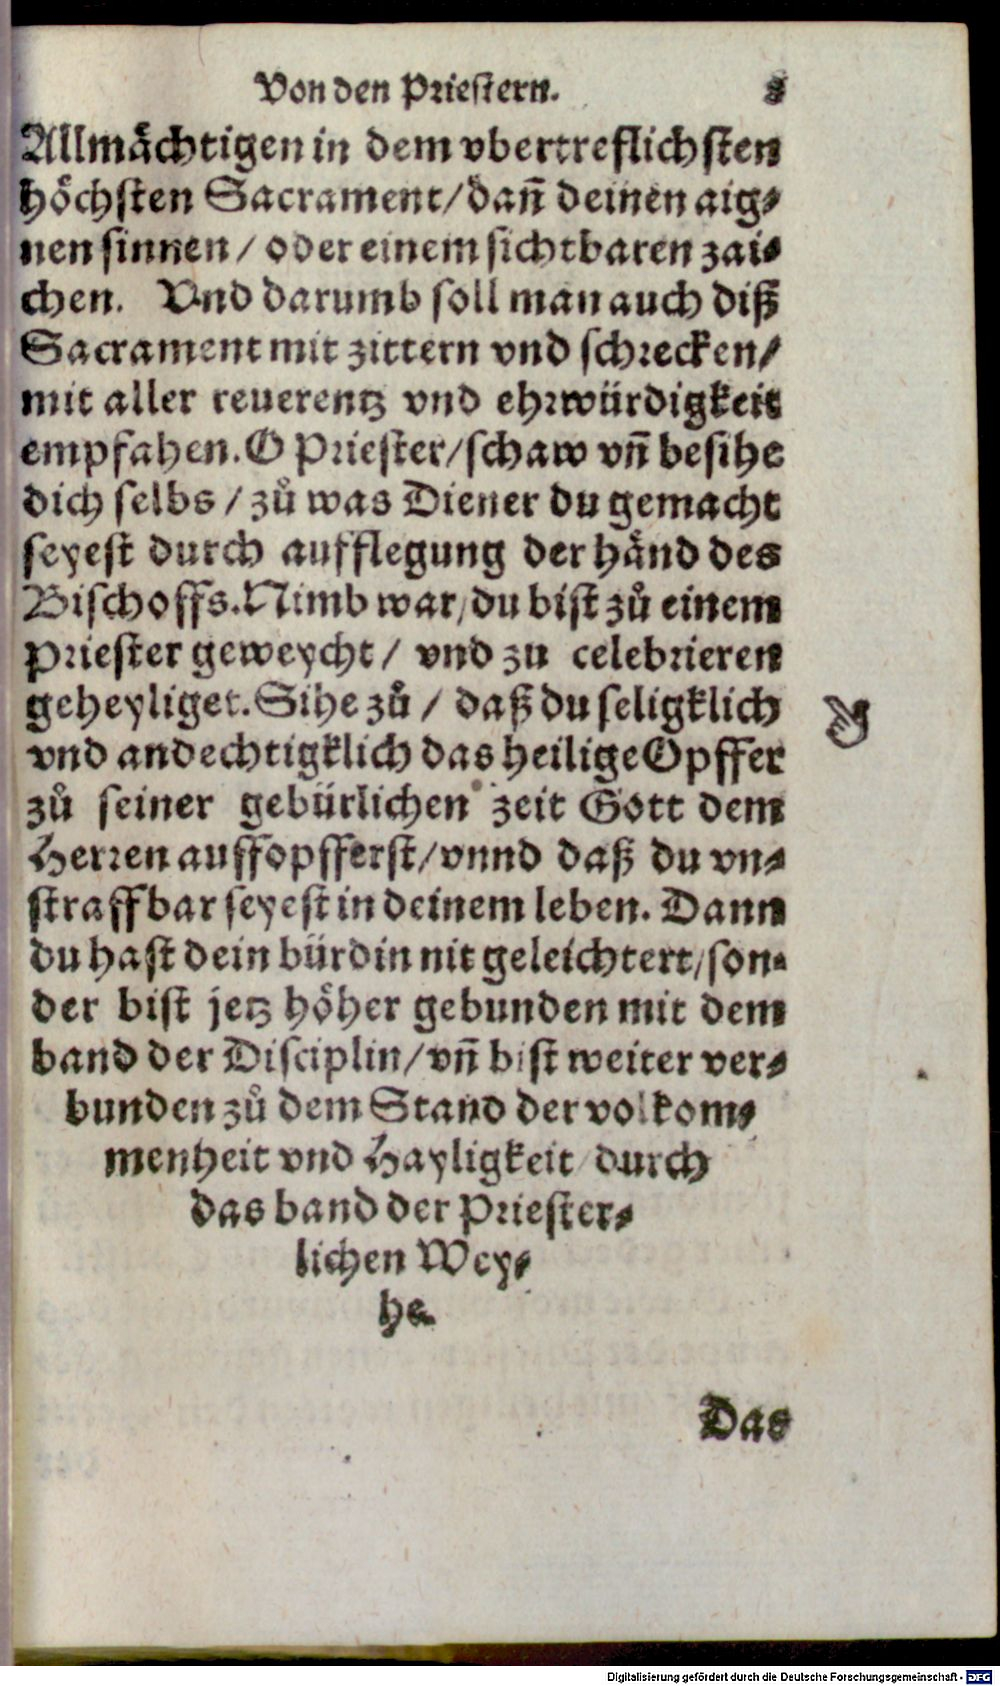 Von den Priestern. 8
Allmaͤchtigen in dem vbertreflichsten
hoͤchsten Sacrament/ dañ deinen aig⸗
nen sinnen / oder einem sichtbaren zai⸗
chen. Vnd darumb soll man auch diß
Sacrament mit zittern vnd schrecken/
mit aller reuerentz vnd ehrwürdigkeit
empfahen. O Priester/ schaw vñ besihe
dich selbs / zuͦ was Diener du gemacht
seyest durch aufflegung der haͤnd des
Bischoffs. Nimb war/ du bist zuͦ einem
Priester geweycht / vnd zu celebrieren
geheyliget. Sihe zuͦ / daß du seligklich
vnd andechtigklich das heilige Opffer
zuͦ seiner gebürlichen zeit Gott dem
Herren auffopfferst/ vnnd daß du vn⸗
straffbar seyest in deinem leben. Dann
du hast dein bürdin nit geleichtert/ son⸗
der bist jetz hoͤher gebunden mit dem
band der Disciplin/ vñ bist weiter ver⸗
bunden zuͦ dem Stand der volkom⸗
menheit vnd Hayligkeit durch
das band der Priester⸗
lichen Wey⸗
he.
Das
Digitalisierung gefördert durch die Deutsche Forschungsgemeinschaft - DFG